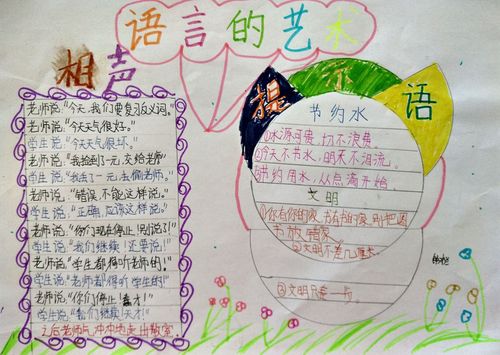 语言的艺术
相声
老师说:“今天,我们要复习反义词。”
老师说:“今天天气很好。”
学生说:“今天天气很坏。”
老师说:“我拾到了一元,交给老师”
学生说:“我丢了一元,去偷老师。”
老师说:“错误,不能这样说。”
学生说:“正确,应该这样说。”
老师说:“你们现在停止,别说了!”
学生说:“我们继续!还要说!”
老师说:“学生都得听老师的!”
学生说:“老师都得听学生的!”
老师说:“你们停止!蠢才!”
学生说:“我们继续!天才!”
之后老师气冲冲地走出教室。
提示语
节约水
①水源可贵,切不浪费。
②今天不节水,明天不泪流。
③节约用水,从点滴开始。
文明
①你有你的家,书有书的家,别把
书放错家
②文明不差几厘米。
③文明只差一步